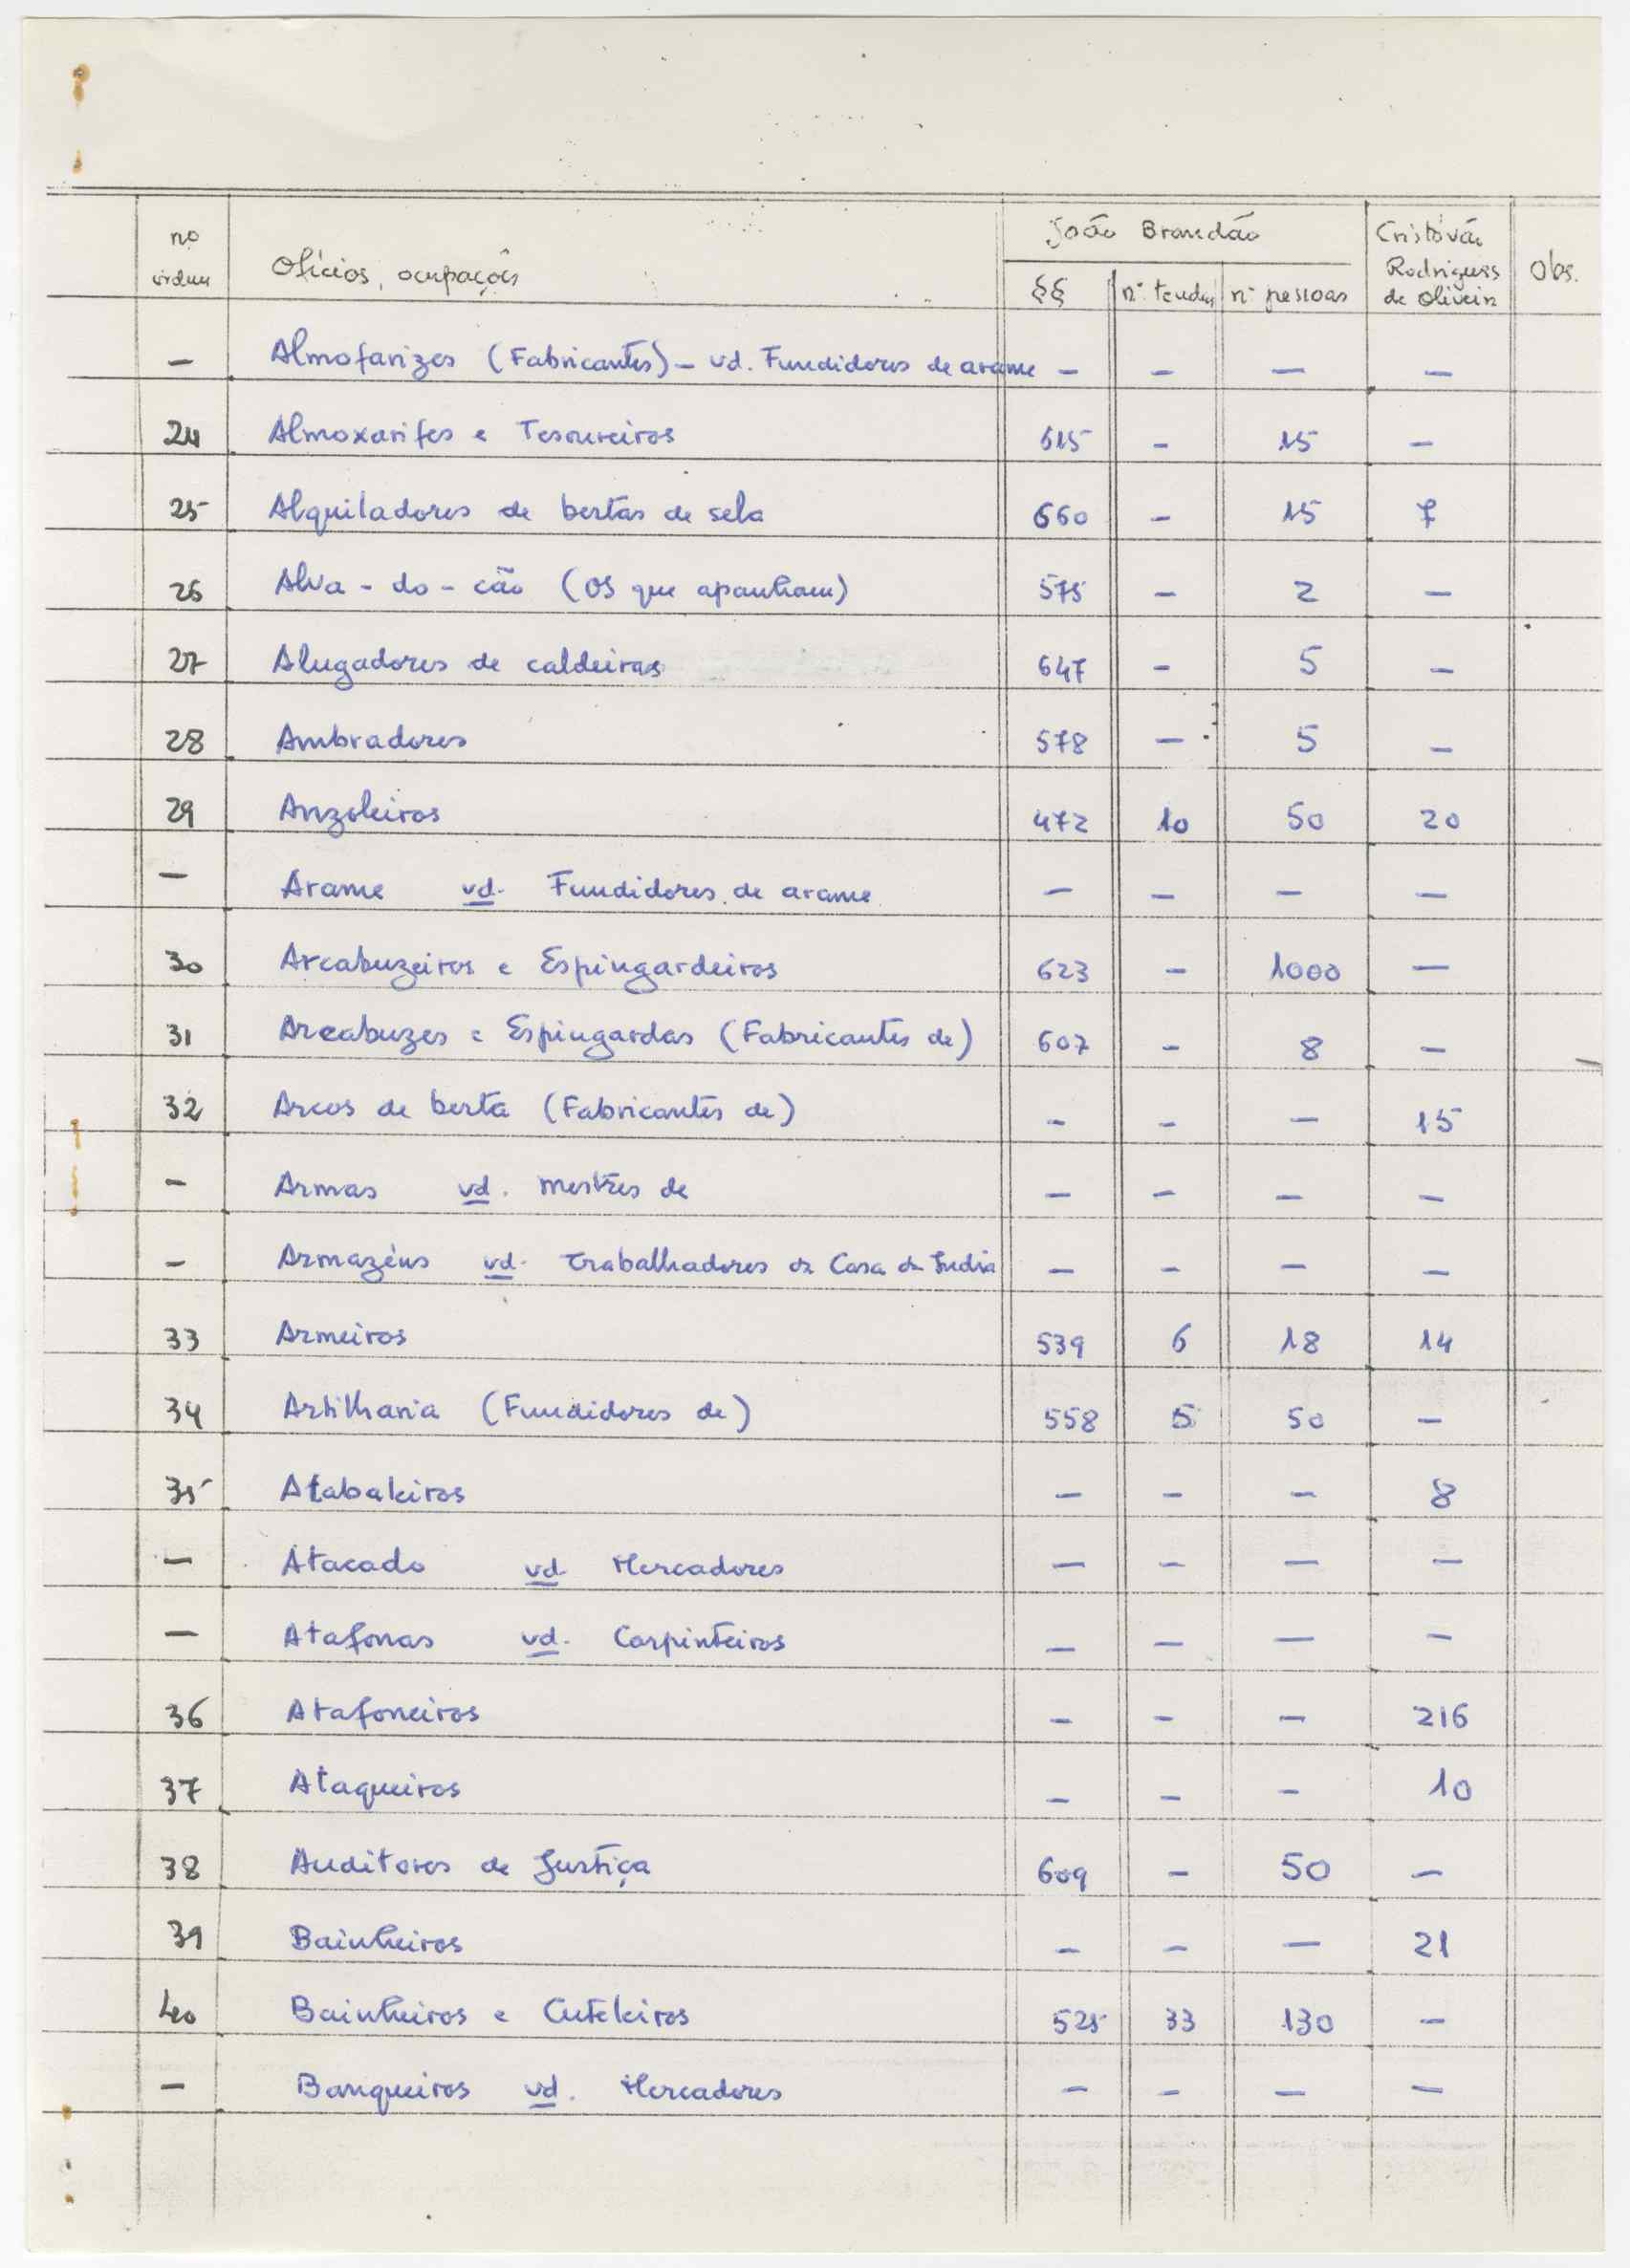 no ordem
Ofícios, ocupações
João Brandão
§§
nº tendas
nº pessoas
Cristóvão Rodrigues de Oliveira
Obs.
— Almofarizes (Fabricantes) – vd. Fundidores de arame — — — —
24 Almoxarifes e Tesoureiros 615 — 15 —
25 Alquiladores de bestas de sela 660 — 15 7
26 Alva-do-cão (os que apanham) 575 — 2 —
27 Alugadores de caldeiras 647 — 5 —
28 Ambradores 578 — 5 —
29 Anzoleiros 472 10 50 20
— Arame vd. Fundidores de arame — — — —
30 Arcabuzeiros e Espingardeiros 623 — 1000 —
31 Arcabuzes e Espingardas (Fabricantes de) 607 — 8 —
32 Arcos de besta (Fabricantes de) — — — 15
— Armas vd. mestres de — — — —
— Armazéns vd. Trabalhadores da Casa da Índia — — — —
33 Armeiros 539 6 18 14
34 Artilharia (Fundidores de) 558 5 50 —
35 Atabaleiros — — — 8
— Atacado vd Mercadores — — — —
— Atafonas vd. Carpinteiros — — — —
36 Atafoneiros — — — 216
37 Ataqueiros — — — 10
38 Auditores de Justiça 609 — 50 —
39 Bainheiros — — — 21
40 Bainheiros e Cuteleiros 525 33 130 —
— Banqueiros vd. Mercadores — — — —